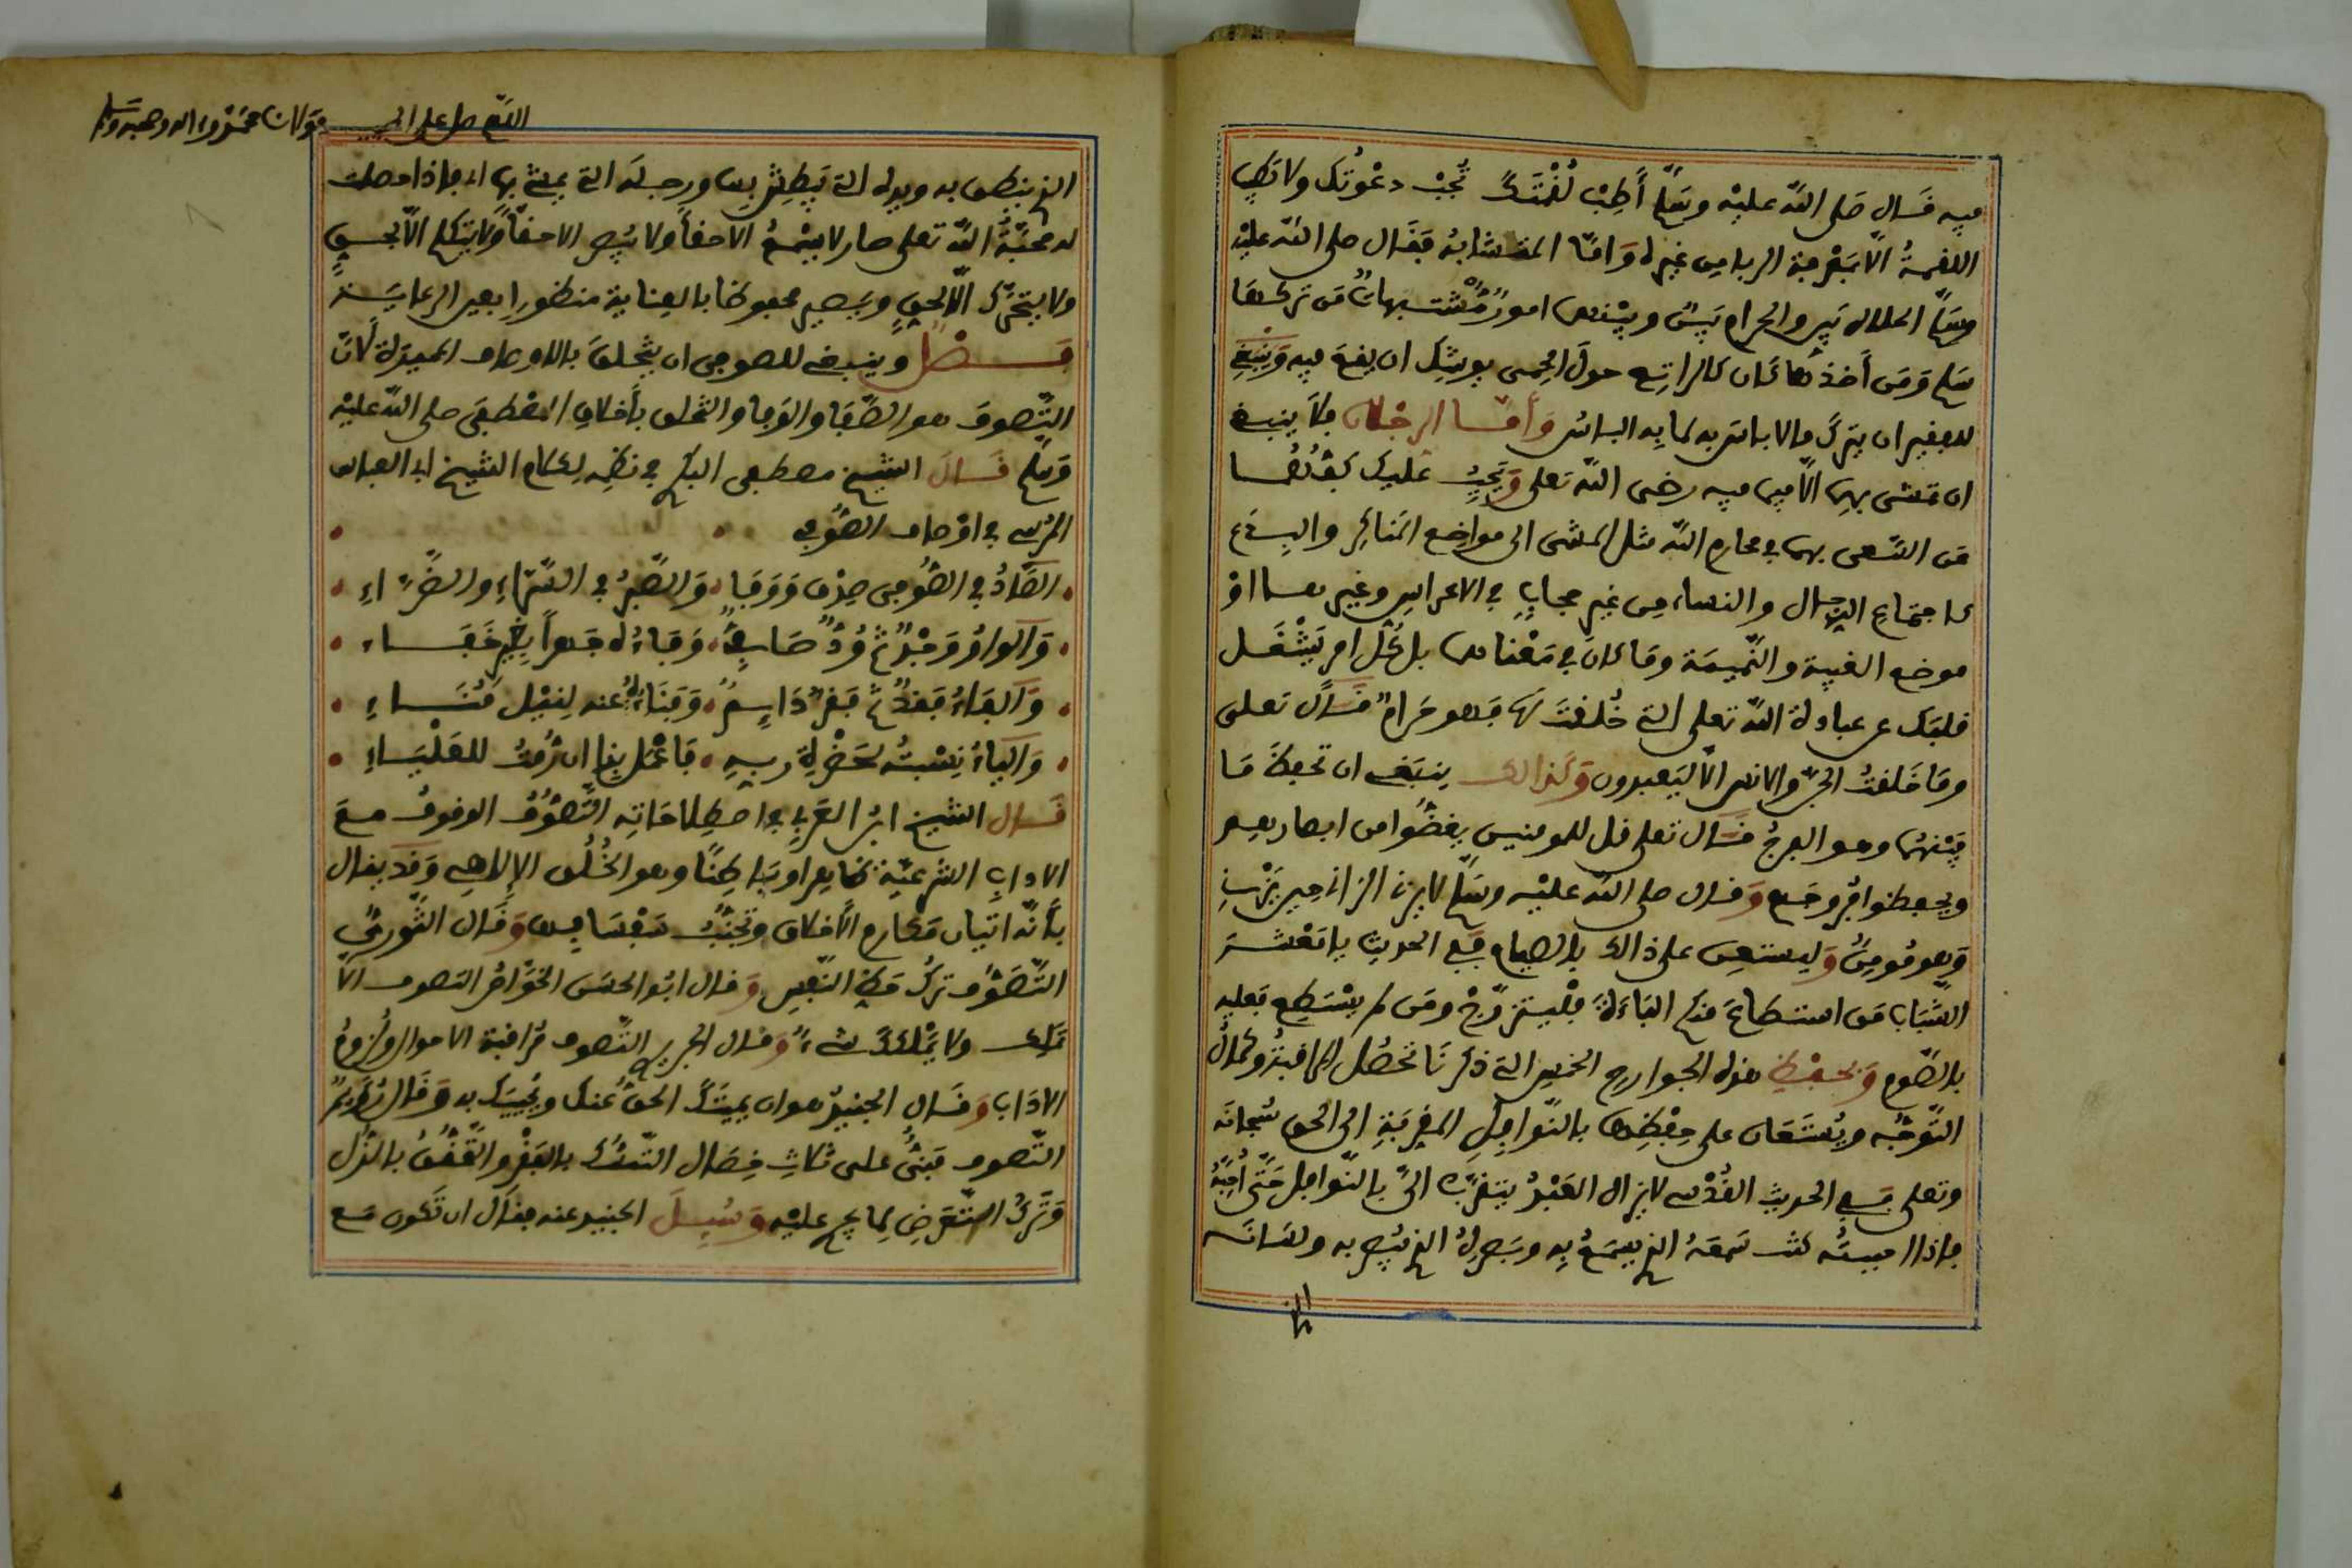 فيه قال صلى الله عليه وسلم أطب لقمتك تجب دعوتك ولا تطيب
اللقمة الا بتفرقة الربا من غيره واما المتشابه فقال صلى الله عليه
وسلم الحلال بين والحرام بين وبينهما امور مشتبهات فمن تركها
سلم ومن أخذها كان كالراتع حول الحمى يوشك ان يقع فيه وينبغي
للفقير ان يترك مالا باس به لما به الباس وأما الرجلان فلا ينبغي
ان تمشى بهما الا فيما فيه رضى الله تعلى ويجب عليك كفهما
من السعى بهما في محارم الله مثل المشى الى مواضع المناكر والبدع
كاجتماع الرجال والنساء من غير حجاب في الاعراس وغيرها او
موضع الغيبة والنميمة وما كان في معناها بل كل امر يشغل
قلبك عن عبادة الله تعلى التي خلقت لها فهو حرام قال تعلى
وما خلقت الجن والانس الا ليعبدون وكذالك ينبغي ان تحفظ ما
بينهما وهو الفرج قال تعلى قل للمومنين يغضوا من ابصارهم
ويحفظوا فروجهم وقال صلى الله عليه وسلم لا يزن الزاني حين يزني
وهو مومن وليستعن على ذالك بالصيام ففي الحديث يا معشر
الشباب من استطاع منكم الباءة فليتزوج ومن لم يستطع فعليه
بالصوم وبحفظ هذه الجوارح الخمس التي ذكرنا تحصل المراقبة وكمال
التوجه ويستعان على حفظها بالنوافل المقربة الى الحق سبحانه
وتعلى ففي الحديث القدسي لا يزال العبد يتقرب الي بالنوافل حتى أحبه
فاذا احببته كنت سمعه الذي يسمع به وبصره الذي يبصر به ولسانه
الذي
اللهم صل على الحبيب مولانا محمد وءاله وصحبه وسلم
الذي ينطق به ويده التي يبطش بها ورجله التي يمشي بها اه فاذا حصلت
له محبة الله تعلى صار لا يسمع الا حقا ولا يبصر الا حقا ولا يتكلم الا بحق
ولا يتحرك الا لحق ويصير محفوظا بالعناية منظورا بعين الرعاية
فصل وينبغي للصوفي ان يتخلق بالاوصاف المميزة لان
التصوف هو الصفا والوفا والتخلق بأخلاق المصطفى صلى الله عليه
وسلم قال الشيخ مصطفى البكري في نظمه لكلام الشيخ ابي العباس
المرسي في اوصاف الصوفي
الصاد في الصوفي صدق ووفا والصبر في السراء والضراء
والواو وجد ثم ود صادق وفاءله فهوا بخير خفاء
والفاء فقد ثم فقر دايم وفناءه عنه لنيل مناء
والياء نسبته لحضرة ربه فاعمل بها ان رمت للعلياء
قال الشيخ ابن العربي في اصطلاحاته التصوف الوقوف مع
الاداب الشرعية ظاهرا وباطنا وهو الخلق الإلاهي وقد يقال
بأنه اتيان مكارم الأخلاق وتجنب سفسافها وقال الثوري
التصوف ترك حظ النفس وقال ابو الحسن التصوف الا
تملك ولا يملكك شيء وقال الجريري التصوف مراقبة الاحوال ولزوم
الاداب وقال الجنيد هو ان يميتك الحق عنك ويحييك به وقال رويم
التصوف مبني على ثلاث خصال التمسك بالفقر والتحقق بالذل
وترك التعرض لما يجري عليه وسيل الجنيد عنه فقال ان تكون مع